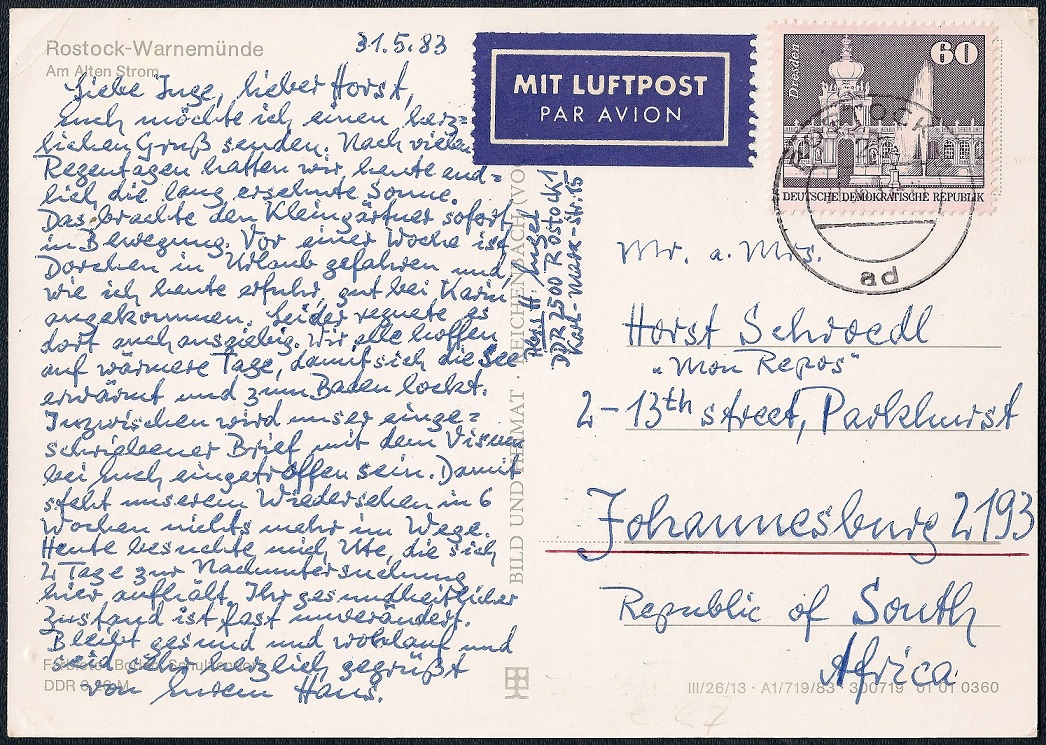 Rostock-Warnemünde
Am Alten Strom
31.5.83
Liebe Inge, lieber Horst,
euch möchte ich einen herz=
lichen Gruß senden. Nach vielen
Regentagen hatten wir heute end=
lich die lang ersehnte Sonne.
Das brachte den Kleingärtner sofort
in Bewegung. Vor einer Woche ist
Dorchen in Urlaub gefahren und,
wie ich heute erfuhr, gut bei Karin
angekommen. Leider regnete es
dort auch ausgiebig. Wir alle hoffen
auf wärmere Tage, damit sich die See
erwärmt und zum Baden lockt.
Inzwischen wird unser einge=
schriebener Brief mit dem Visum
bei Euch eingetroffen sein. Damit
steht unserem Wiedersehen in 6
Wochen nichts mehr im Wege.
Heute besuchte mich Ute, die sich
2 Tage zur Nachuntersuchung
hier aufhält. Ihr gesundheitlicher
Zustand ist fast unverändert.
Bleibt gesund und wohlauf und
seid sehr herzlich gegrüßt
von Eurem Hans.
DDR M
BILD UND HEIMAT · REICHENBACH (VO
H.
DDR 2500 Rostock 1
Karl-Marx-Str. 15
MIT LUFTPOST
PAR AVION
Dresden
60
DEUTSCHE DEMOKRATISCHE REPUBLIK
ad
Mr. a. Mrs.
Horst Schroedl
"Mon Repos"
2-13th street, Parkhurst
Johannesburg 2193
Republic of South
Africa
III/26/13 · A1/719/83 · 300719 01 01 0360